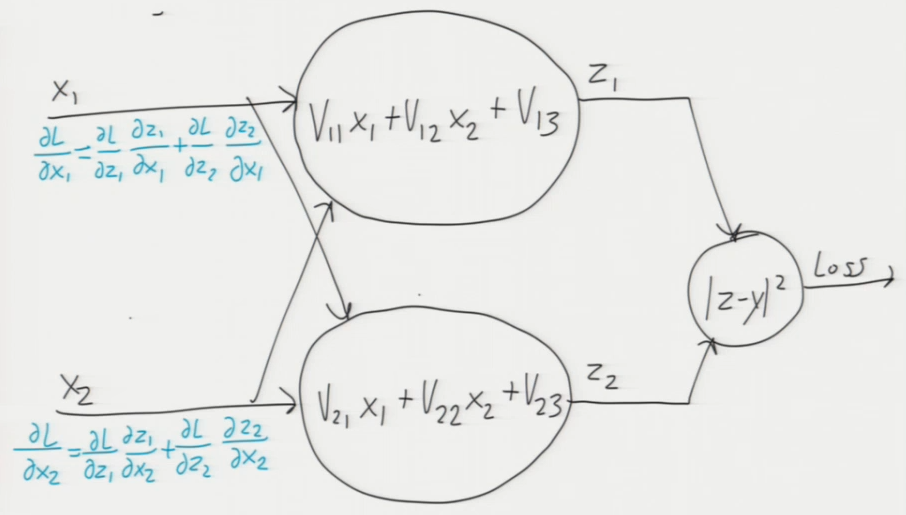 x₁
∂L/∂x₁ = ∂L/∂z₁ ∂z₁/∂x₁ + ∂L/∂z₂ ∂z₂/∂x₁
V₁₁x₁+V₁₂x₂+V₁₃
z₁
|z-y|²
Loss
x₂
∂L/∂x₂ = ∂L/∂z₁ ∂z₁/∂x₂ + ∂L/∂z₂ ∂z₂/∂x₂
V₂₁x₁+V₂₂x₂+V₂₃
z₂